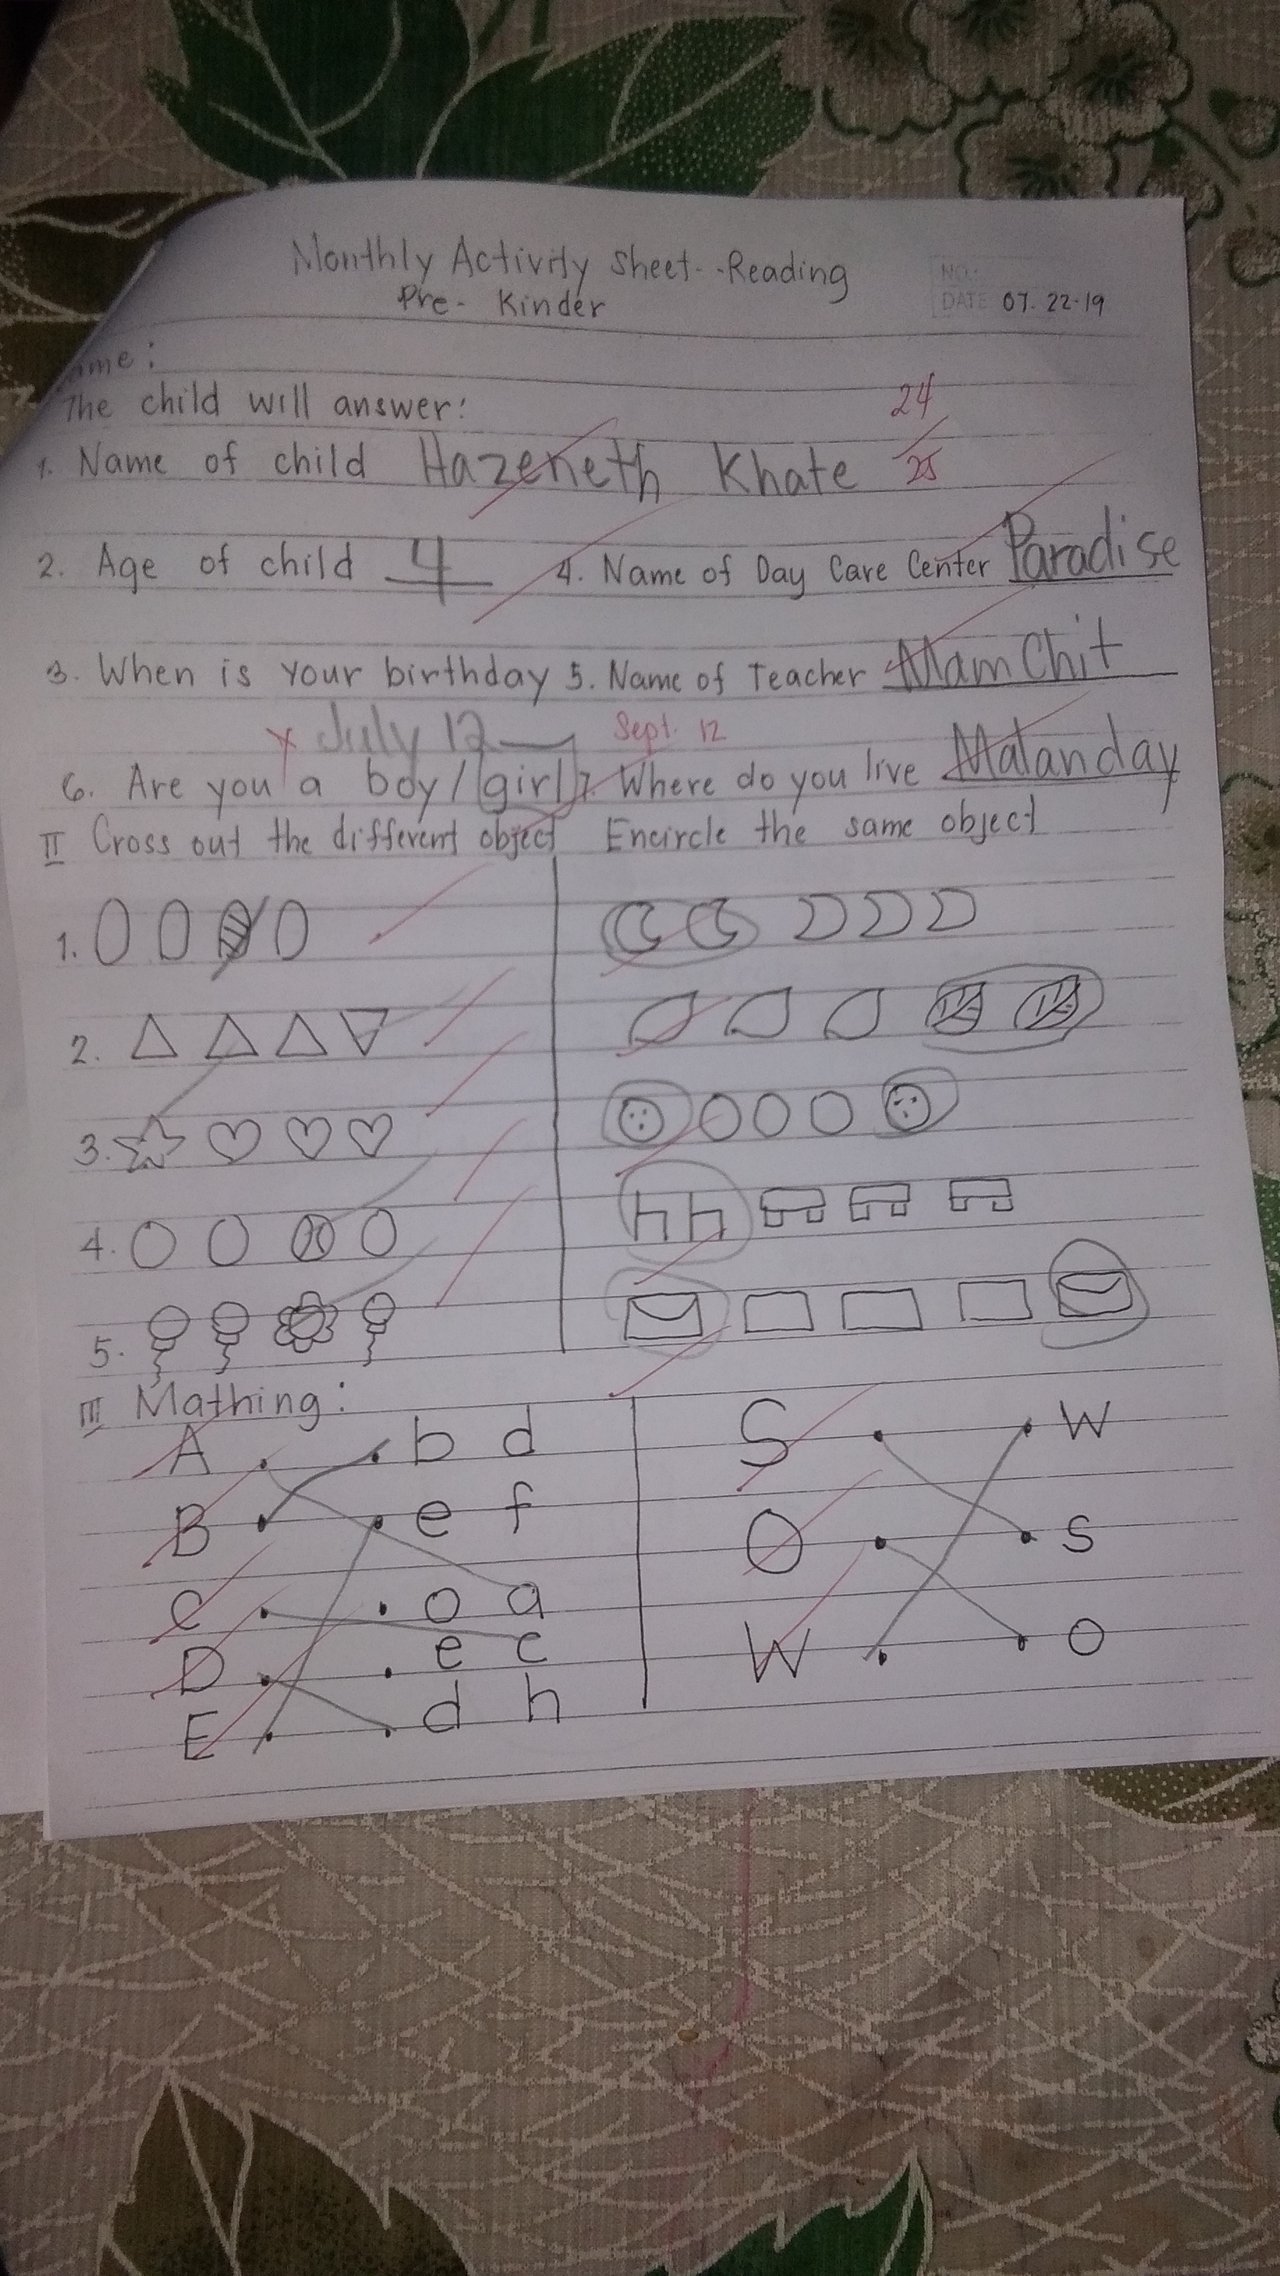 Monthly Activity Sheet - Reading
Pre - Kinder
NO.:
DATE 07. 22-19
ame:
The child will answer:
24
25
1. Name of child Hazeneth Khate
2. Age of child 4
4. Name of Day Care Center Paradise
3. When is your birthday
5. Name of Teacher Mam Chit
x July 12
Sept. 12
6. Are you a boy/girl
7. Where do you live Matanday
II Cross out the different object
Encircle the same object
1.
2.
3.
4.
5.
III Mathing:
A b d
B e f
C o a
D e c
E d h
S W
O s
W o